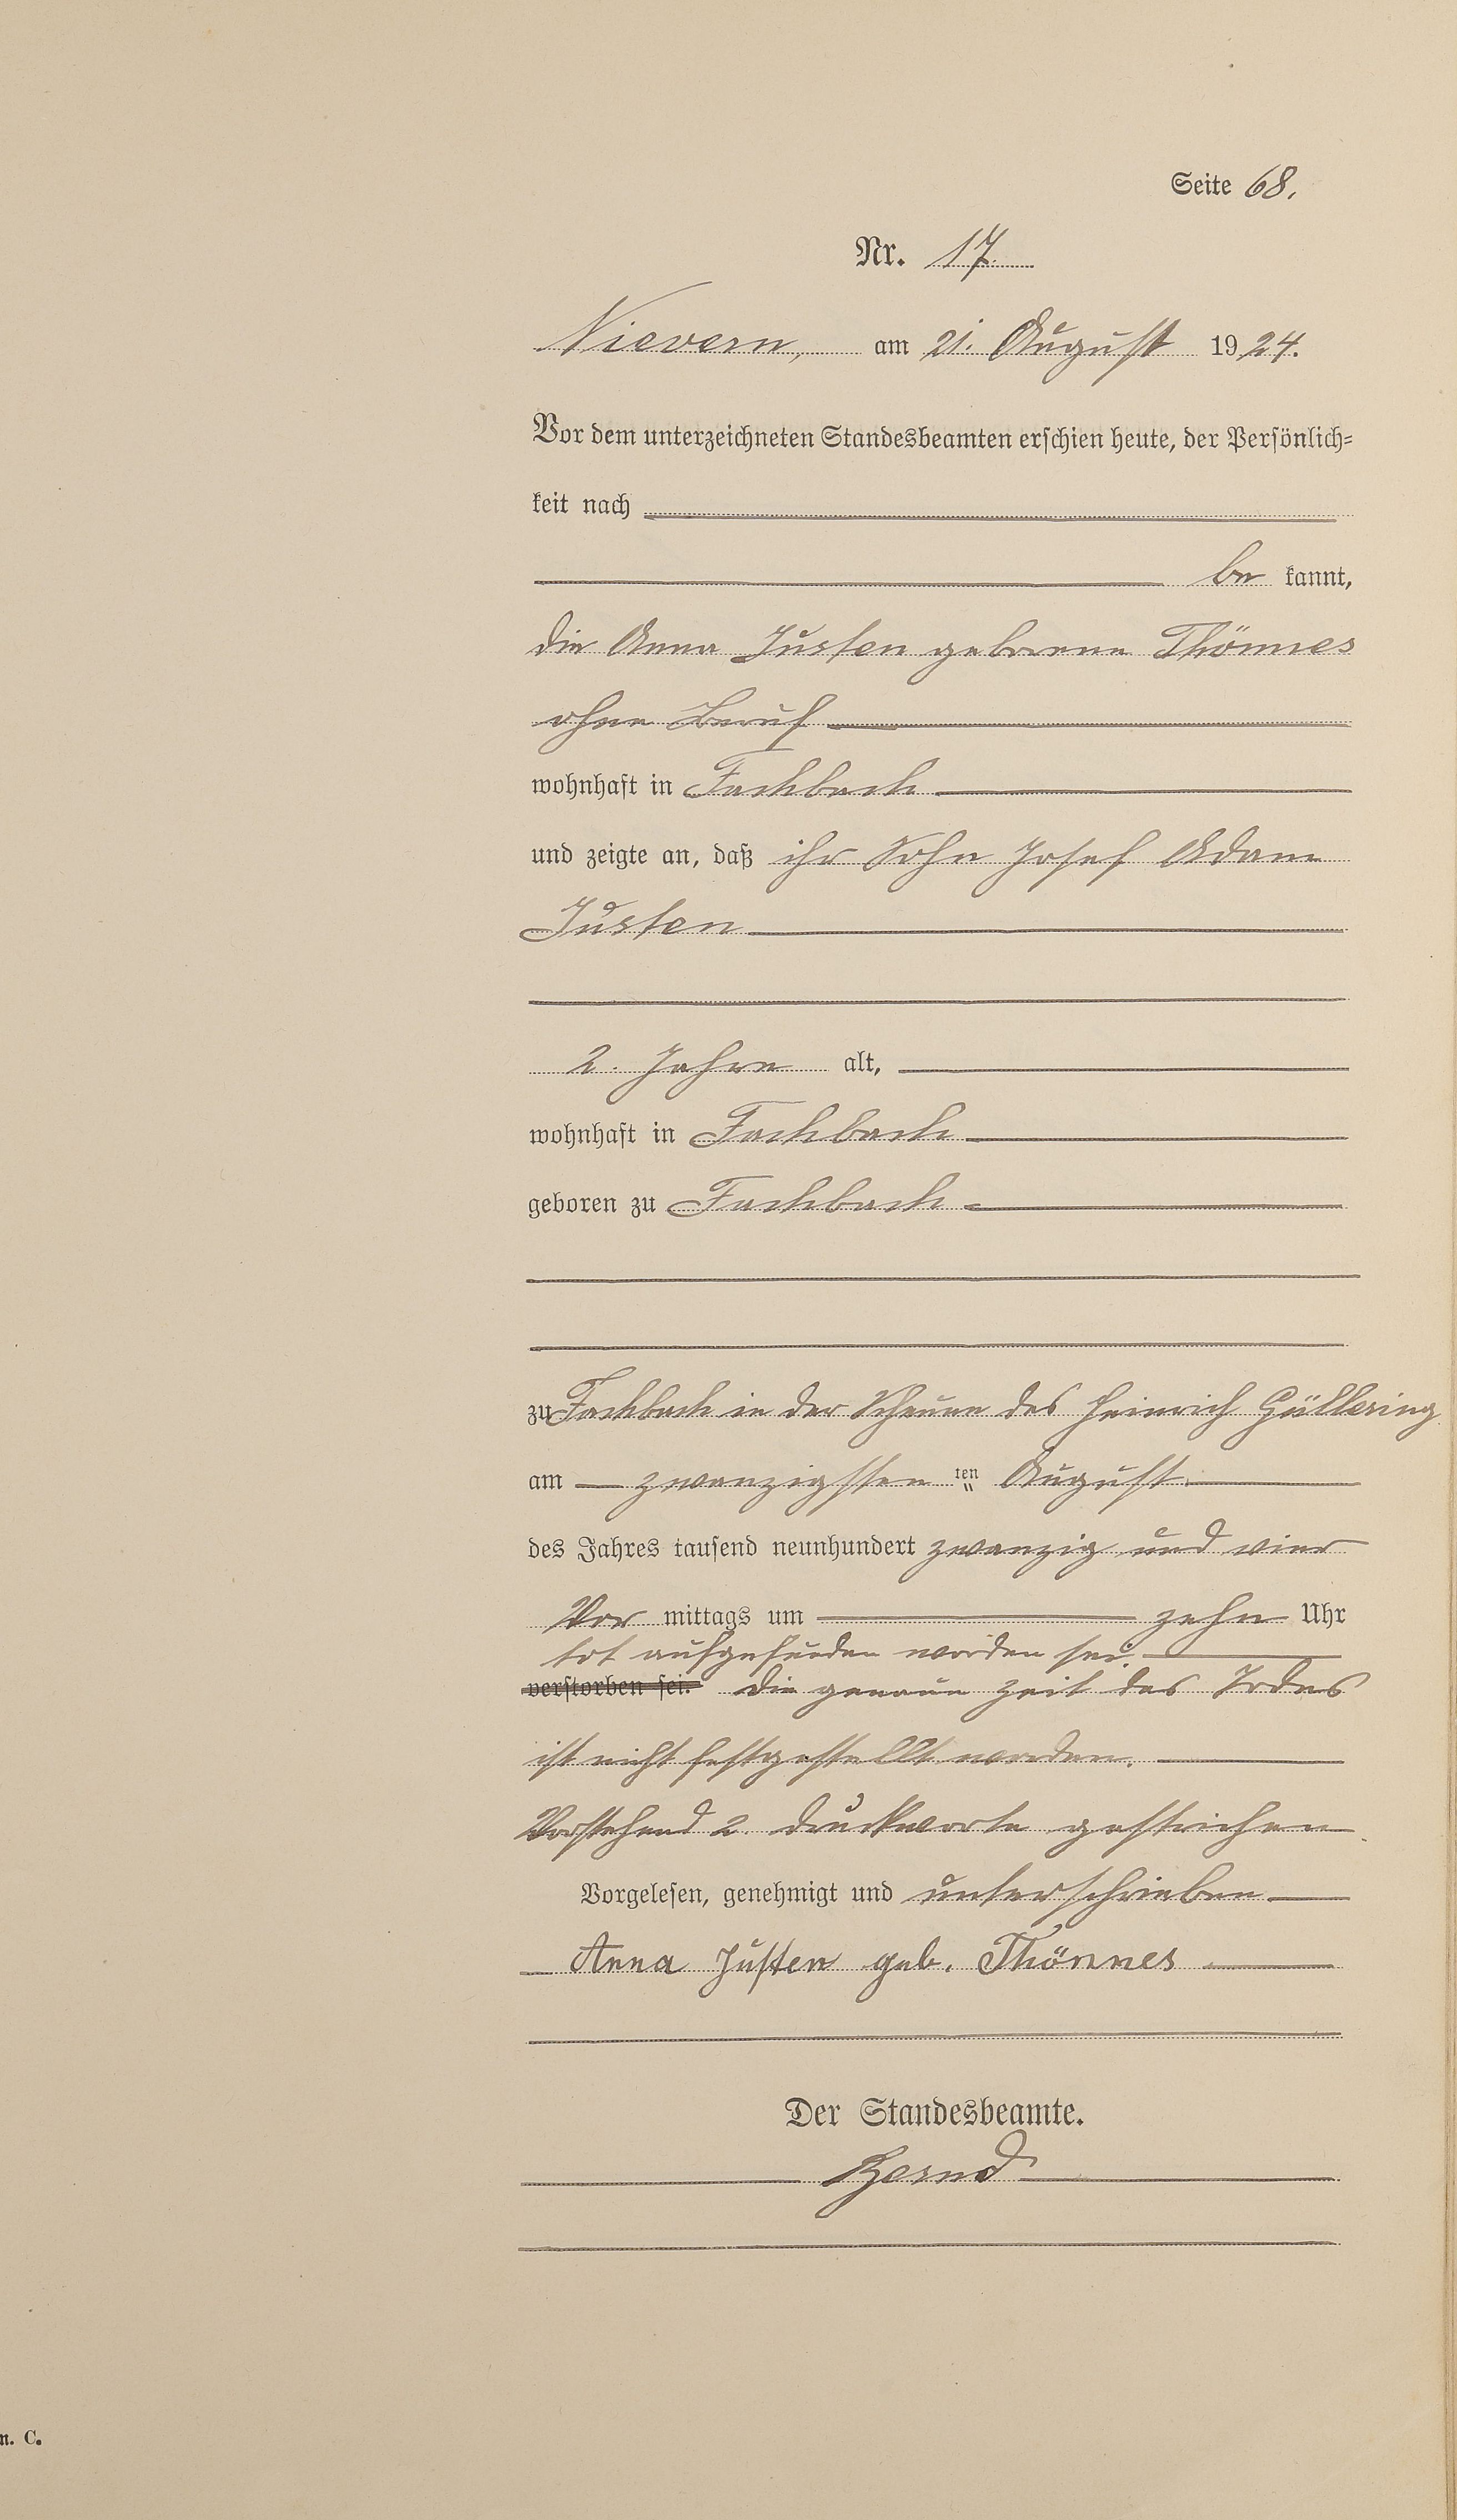 Seite 68.
Nr. 17.
Nievern, am 21. August 1924.
Vor dem unterzeichneten Standesbeamten erschien heute, der Persönlich-
keit nach
be kannt,
die Anna Justen geborene Thönnes
ohne Beruf
wohnhaft in Fachbach
und zeigte an, daß ihr Sohn Josef Adam
Justen
2. Jahre alt,
wohnhaft in Fachbach
geboren zu Fachbach
zu Fachbach in der Scheune des Heinrich Güllering
am zwanzigsten ten August
des Jahres tausend neunhundert zwanzig und vier
Vor mittags um zehn Uhr
tot aufgefunden worden sei.
verstorben sei. Die genaue Zeit des Todes
ist nicht festgestellt worden.
Vorstehend 2 Druckworte gestrichen
Vorgelesen, genehmigt und unterschrieben
Anna Justen geb. Thönnes
Der Standesbeamte.
n. C.